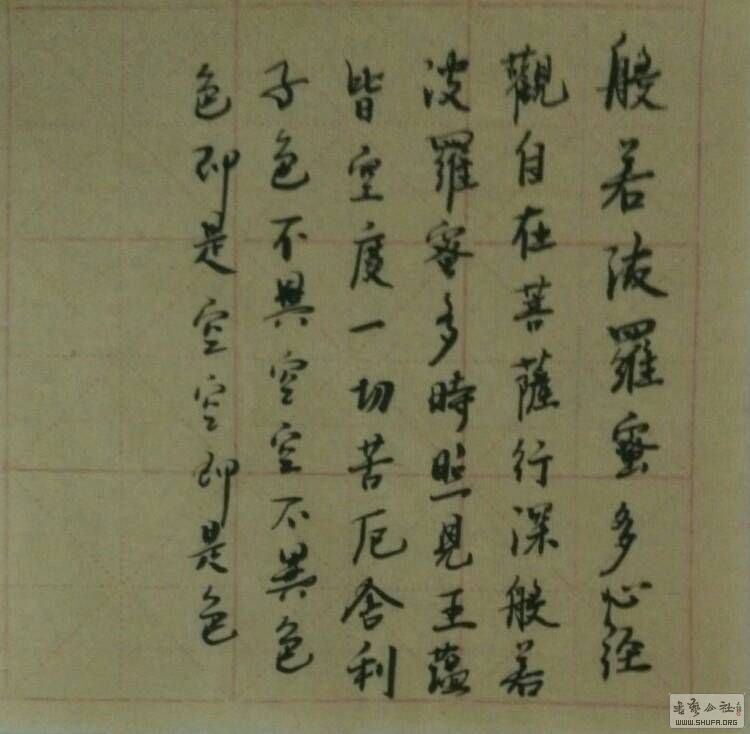 般若波羅蜜多心经
觀自在菩薩行深般若
波羅蜜多時照見五蘊
皆空度一切苦厄舍利
子色不異空空不異色
色即是空空即是色
书艺公社
WWW.SHUFA.ORG